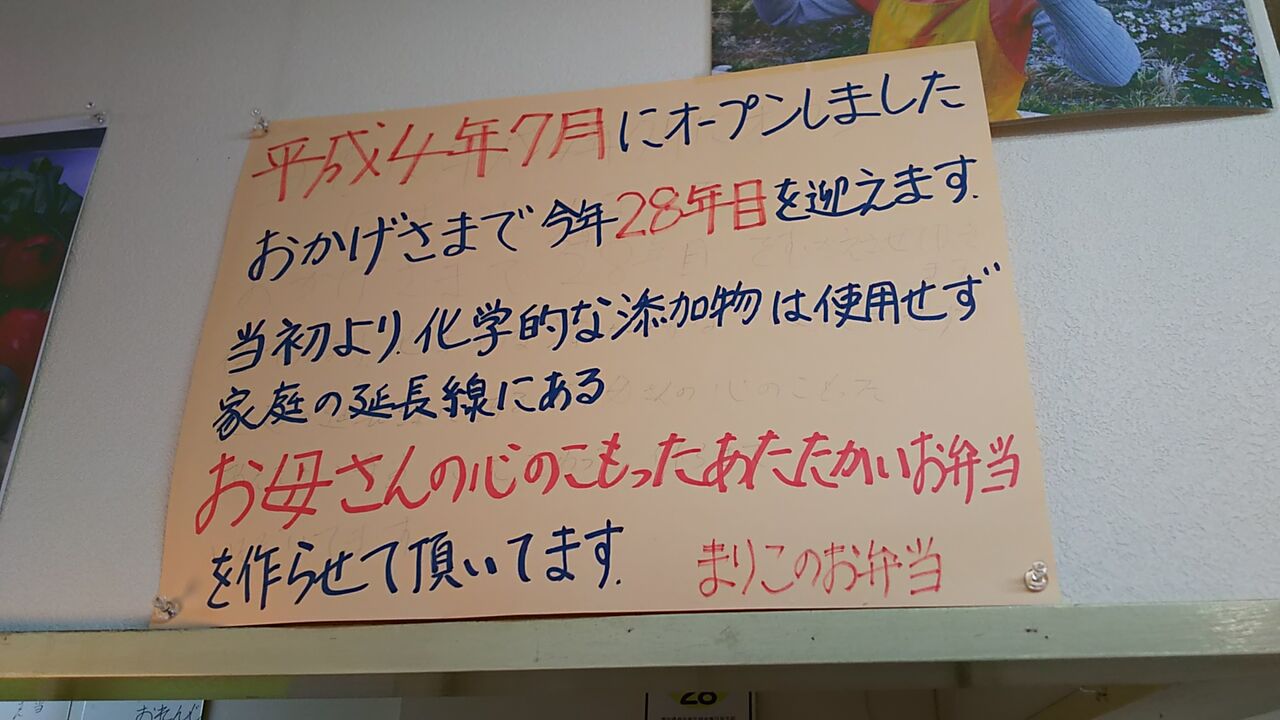 平成4年7月にオープンしました
おかげさまで今年28年目を迎えます.
当初より.化学的な添加物は使用せず
家庭の延長線にある
お母さんの心のこもったあたたかいお弁当
を作らせて頂いてます.
まりこのお弁当
28